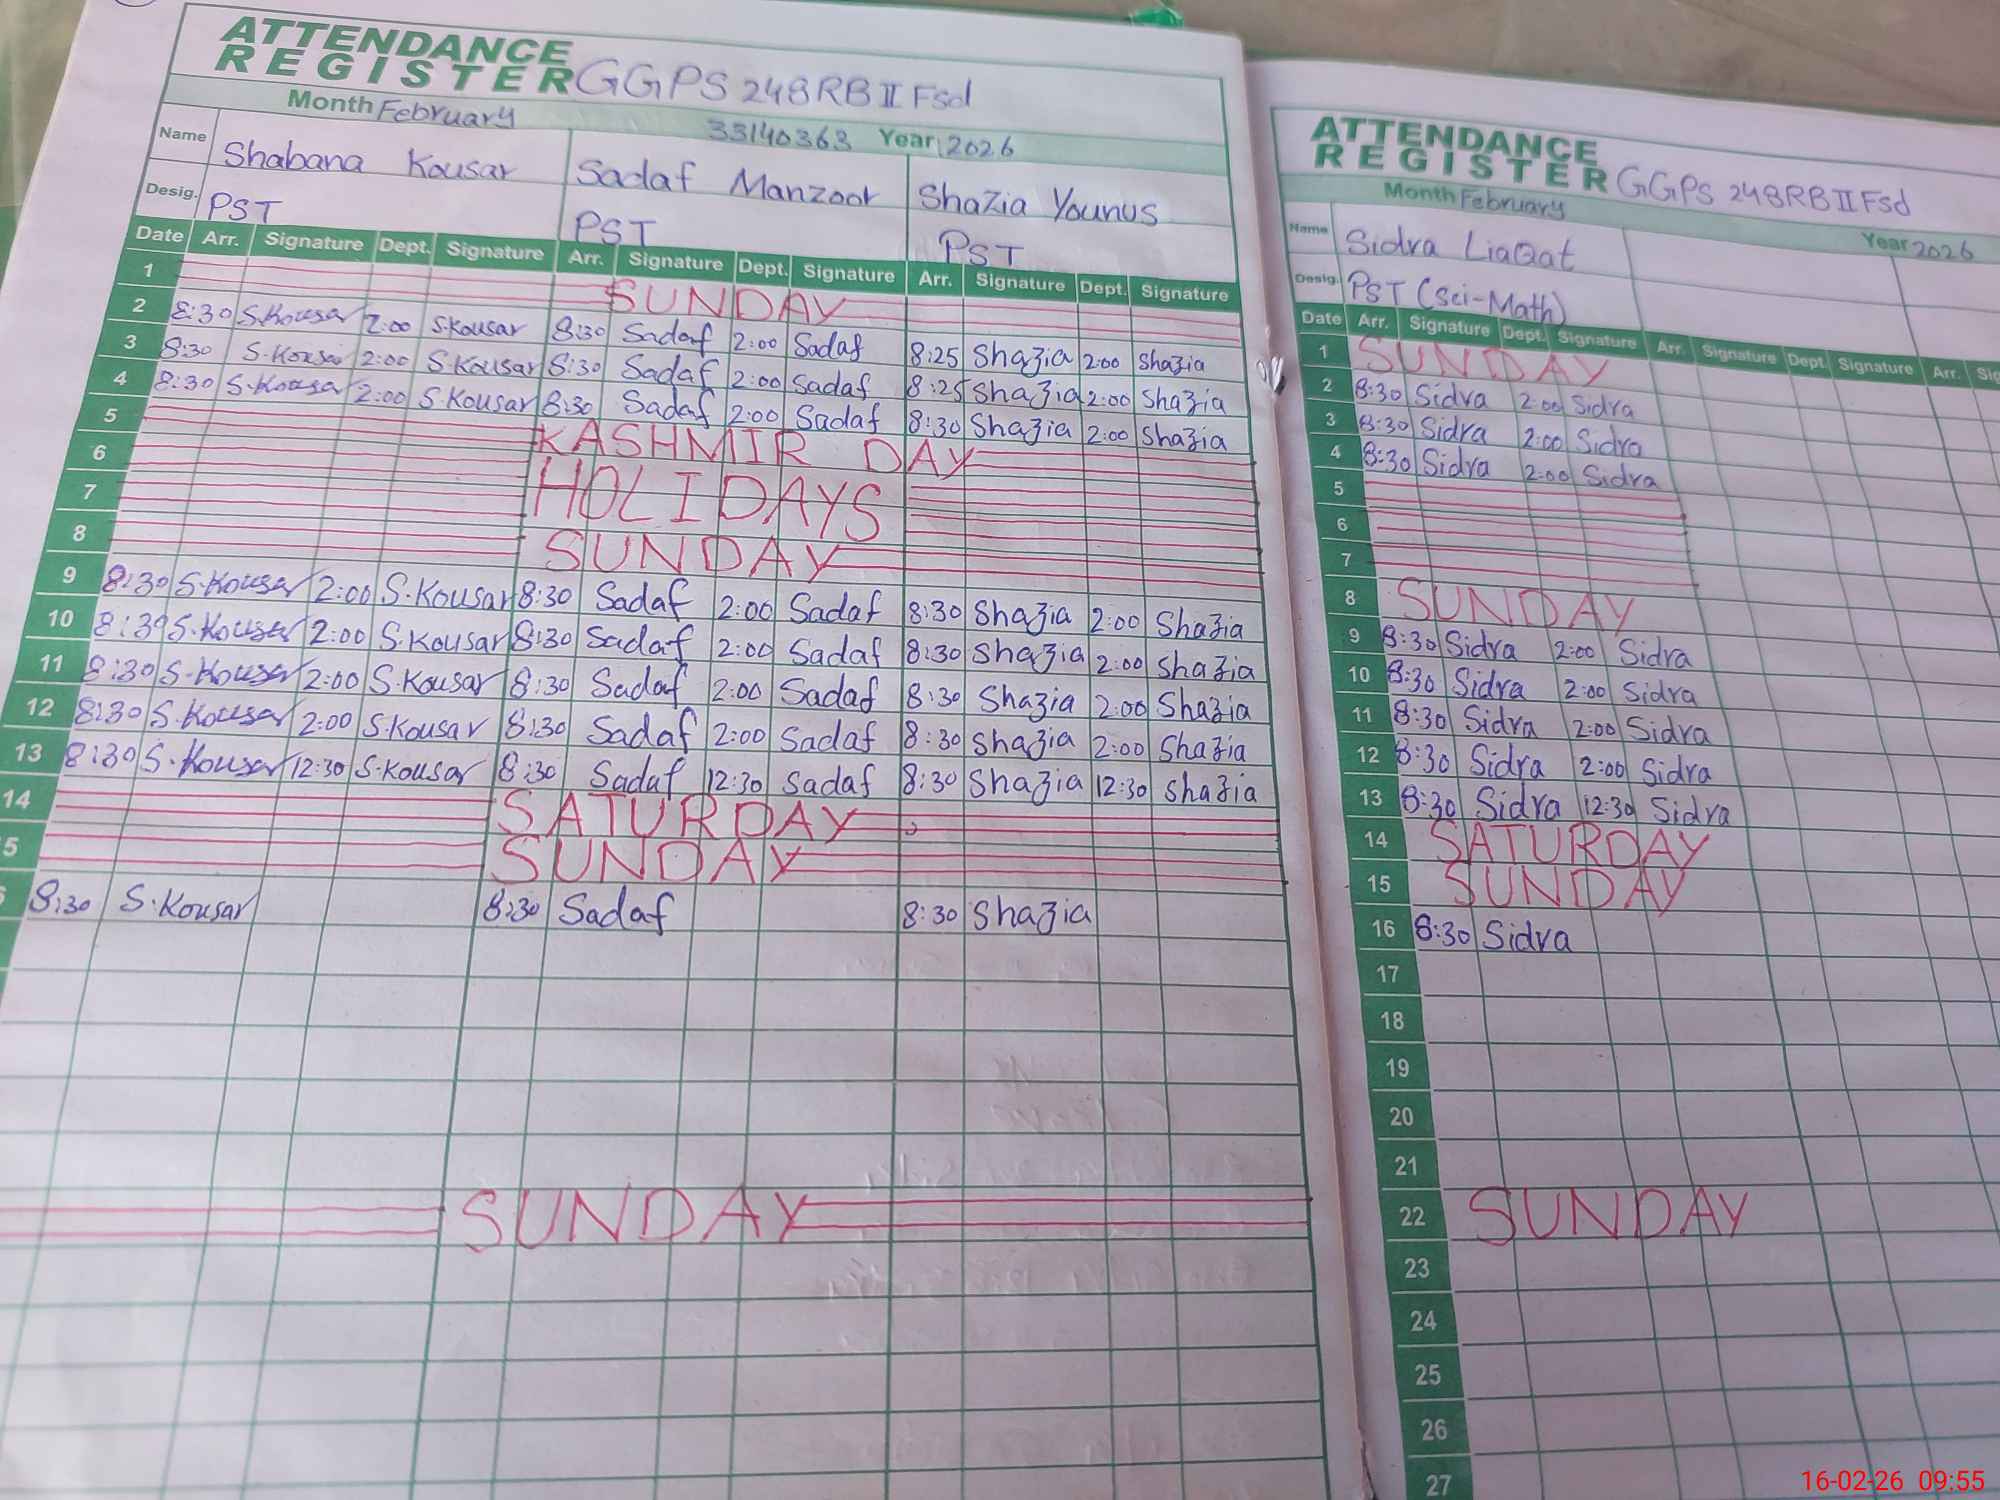 ATTENDANCE
REGISTER GGPS 248RB II Fsd
Month February 33140363 Year 2026
Name Shabana Kousar Sadaf Manzoor Shazia Younus
Desig. PST PST PST
Date Arr. Signature Dept. Signature Arr. Signature Dept. Signature Arr. Signature Dept. Signature
1 SUNDAY
2 8:30 S.Kousar 2:00 S.Kousar 8:30 Sadaf 2:00 Sadaf 8:25 Shazia 2:00 Shazia
3 8:30 S.Kousar 2:00 S.Kousar 8:30 Sadaf 2:00 Sadaf 8:25 Shazia 2:00 Shazia
4 8:30 S.Kousar 2:00 S.Kousar 8:30 Sadaf 2:00 Sadaf 8:30 Shazia 2:00 Shazia
5 KASHMIR DAY
6
7 HOLIDAYS
8 SUNDAY
9 8:30 S.Kousar 2:00 S.Kousar 8:30 Sadaf 2:00 Sadaf 8:30 Shazia 2:00 Shazia
10 8:30 S.Kousar 2:00 S.Kousar 8:30 Sadaf 2:00 Sadaf 8:30 Shazia 2:00 Shazia
11 8:30 S.Kousar 2:00 S.Kousar 8:30 Sadaf 2:00 Sadaf 8:30 Shazia 2:00 Shazia
12 8:30 S.Kousar 2:00 S.Kousar 8:30 Sadaf 2:00 Sadaf 8:30 Shazia 2:00 Shazia
13 8:30 S.Kousar 12:30 S.Kousar 8:30 Sadaf 12:30 Sadaf 8:30 Shazia 12:30 Shazia
14 SATURDAY
5 SUNDAY
8:30 S.Kousar 8:30 Sadaf 8:30 Shazia
SUNDAY
ATTENDANCE
REGISTER GGPS 248RB II Fsd
Month February Year 2026
Name Sidra LiaQat
Desig. PST (Sci-Math)
Date Arr. Signature Dept. Signature Arr. Signature Dept. Signature Arr. Sig
1 SUNDAY
2 8:30 Sidra 2:00 Sidra
3 8:30 Sidra 2:00 Sidra
4 8:30 Sidra 2:00 Sidra
5
6
7
8 SUNDAY
9 8:30 Sidra 2:00 Sidra
10 8:30 Sidra 2:00 Sidra
11 8:30 Sidra 2:00 Sidra
12 8:30 Sidra 2:00 Sidra
13 8:30 Sidra 12:30 Sidra
14 SATURDAY
15 SUNDAY
16 8:30 Sidra
17
18
19
20
21
22 SUNDAY
23
24
25
26
27
16-02-26 09:55